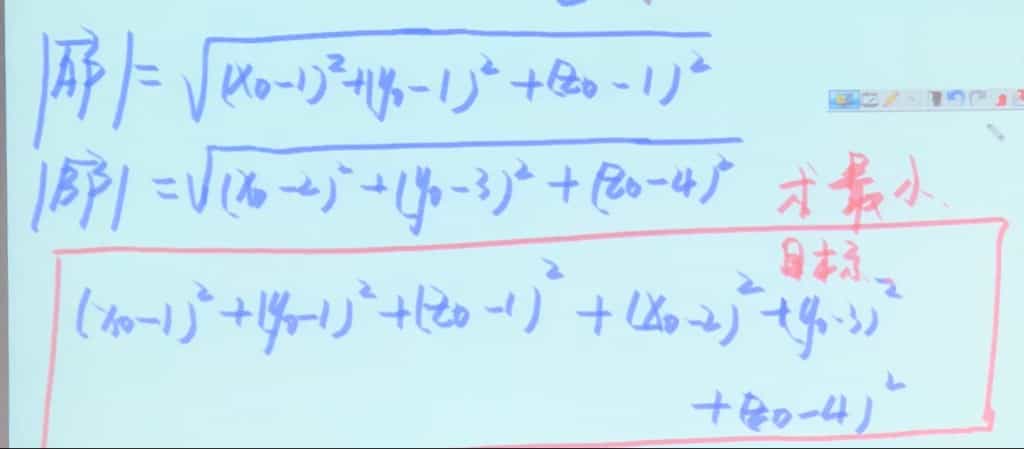 |AP| = √(x₀-1)²+(y₀-1)²+(z₀-1)²
|BP| = √(x₀-2)²+(y₀-3)²+(z₀-4)²
求最小
目标
(x₀-1)²+(y₀-1)²+(z₀-1)²+(x₀-2)²+(y₀-3)²
+(z₀-4)²